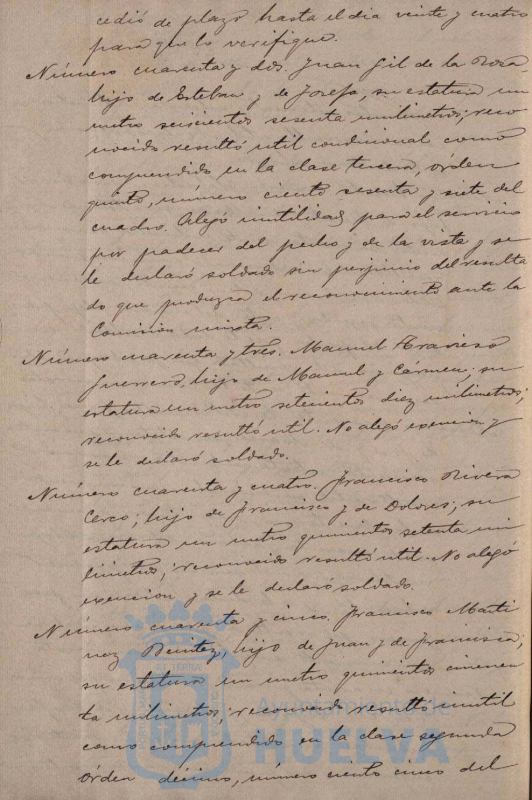 cedió de plazo hasta el dia veinte y cuatro
para que lo verifique.
Número cuarenta y dos. Juan Gil de la Rosa
hijo de Esteban y de Josefa, su estatura un
metro seiscientos sesenta milimetros; reco
nocido resultó util condicional como
comprendido en la clase tercera, órden
quinto, número ciento sesenta y siete del
cuadro. Alegó inutilidad para el servicio
por padecer del pecho y de la vista y se
le declaró soldado sin perjuicio del resulta
do que produzca el reconocimiento ante la
Comision mixta.
Número cuarenta y tres. Manuel Travieso
Guerrero, hijo de Manuel y Carmen; su
estatura un metro setecientos diez milimetros;
reconocido resultó util. No alegó exencion y
se le declaró soldado.
Número cuarenta y cuatro. Francisco Rivera
Cerco; hijo de Francisco y de Dolores; su
estatura un metro quinientos setenta mi
limetros; reconocido resultó util. No alegó
exencion y se le declaró soldado.
Número cuarenta y cinco. Francisco Marti
nez Benitez, hijo de Juan y de Francisca,
su estatura un metro quinientos cincuen
ta milimetros; reconocido resultó inutil
como comprendido en la clase segunda
órden décimo, número ciento cinco del
HUELVA